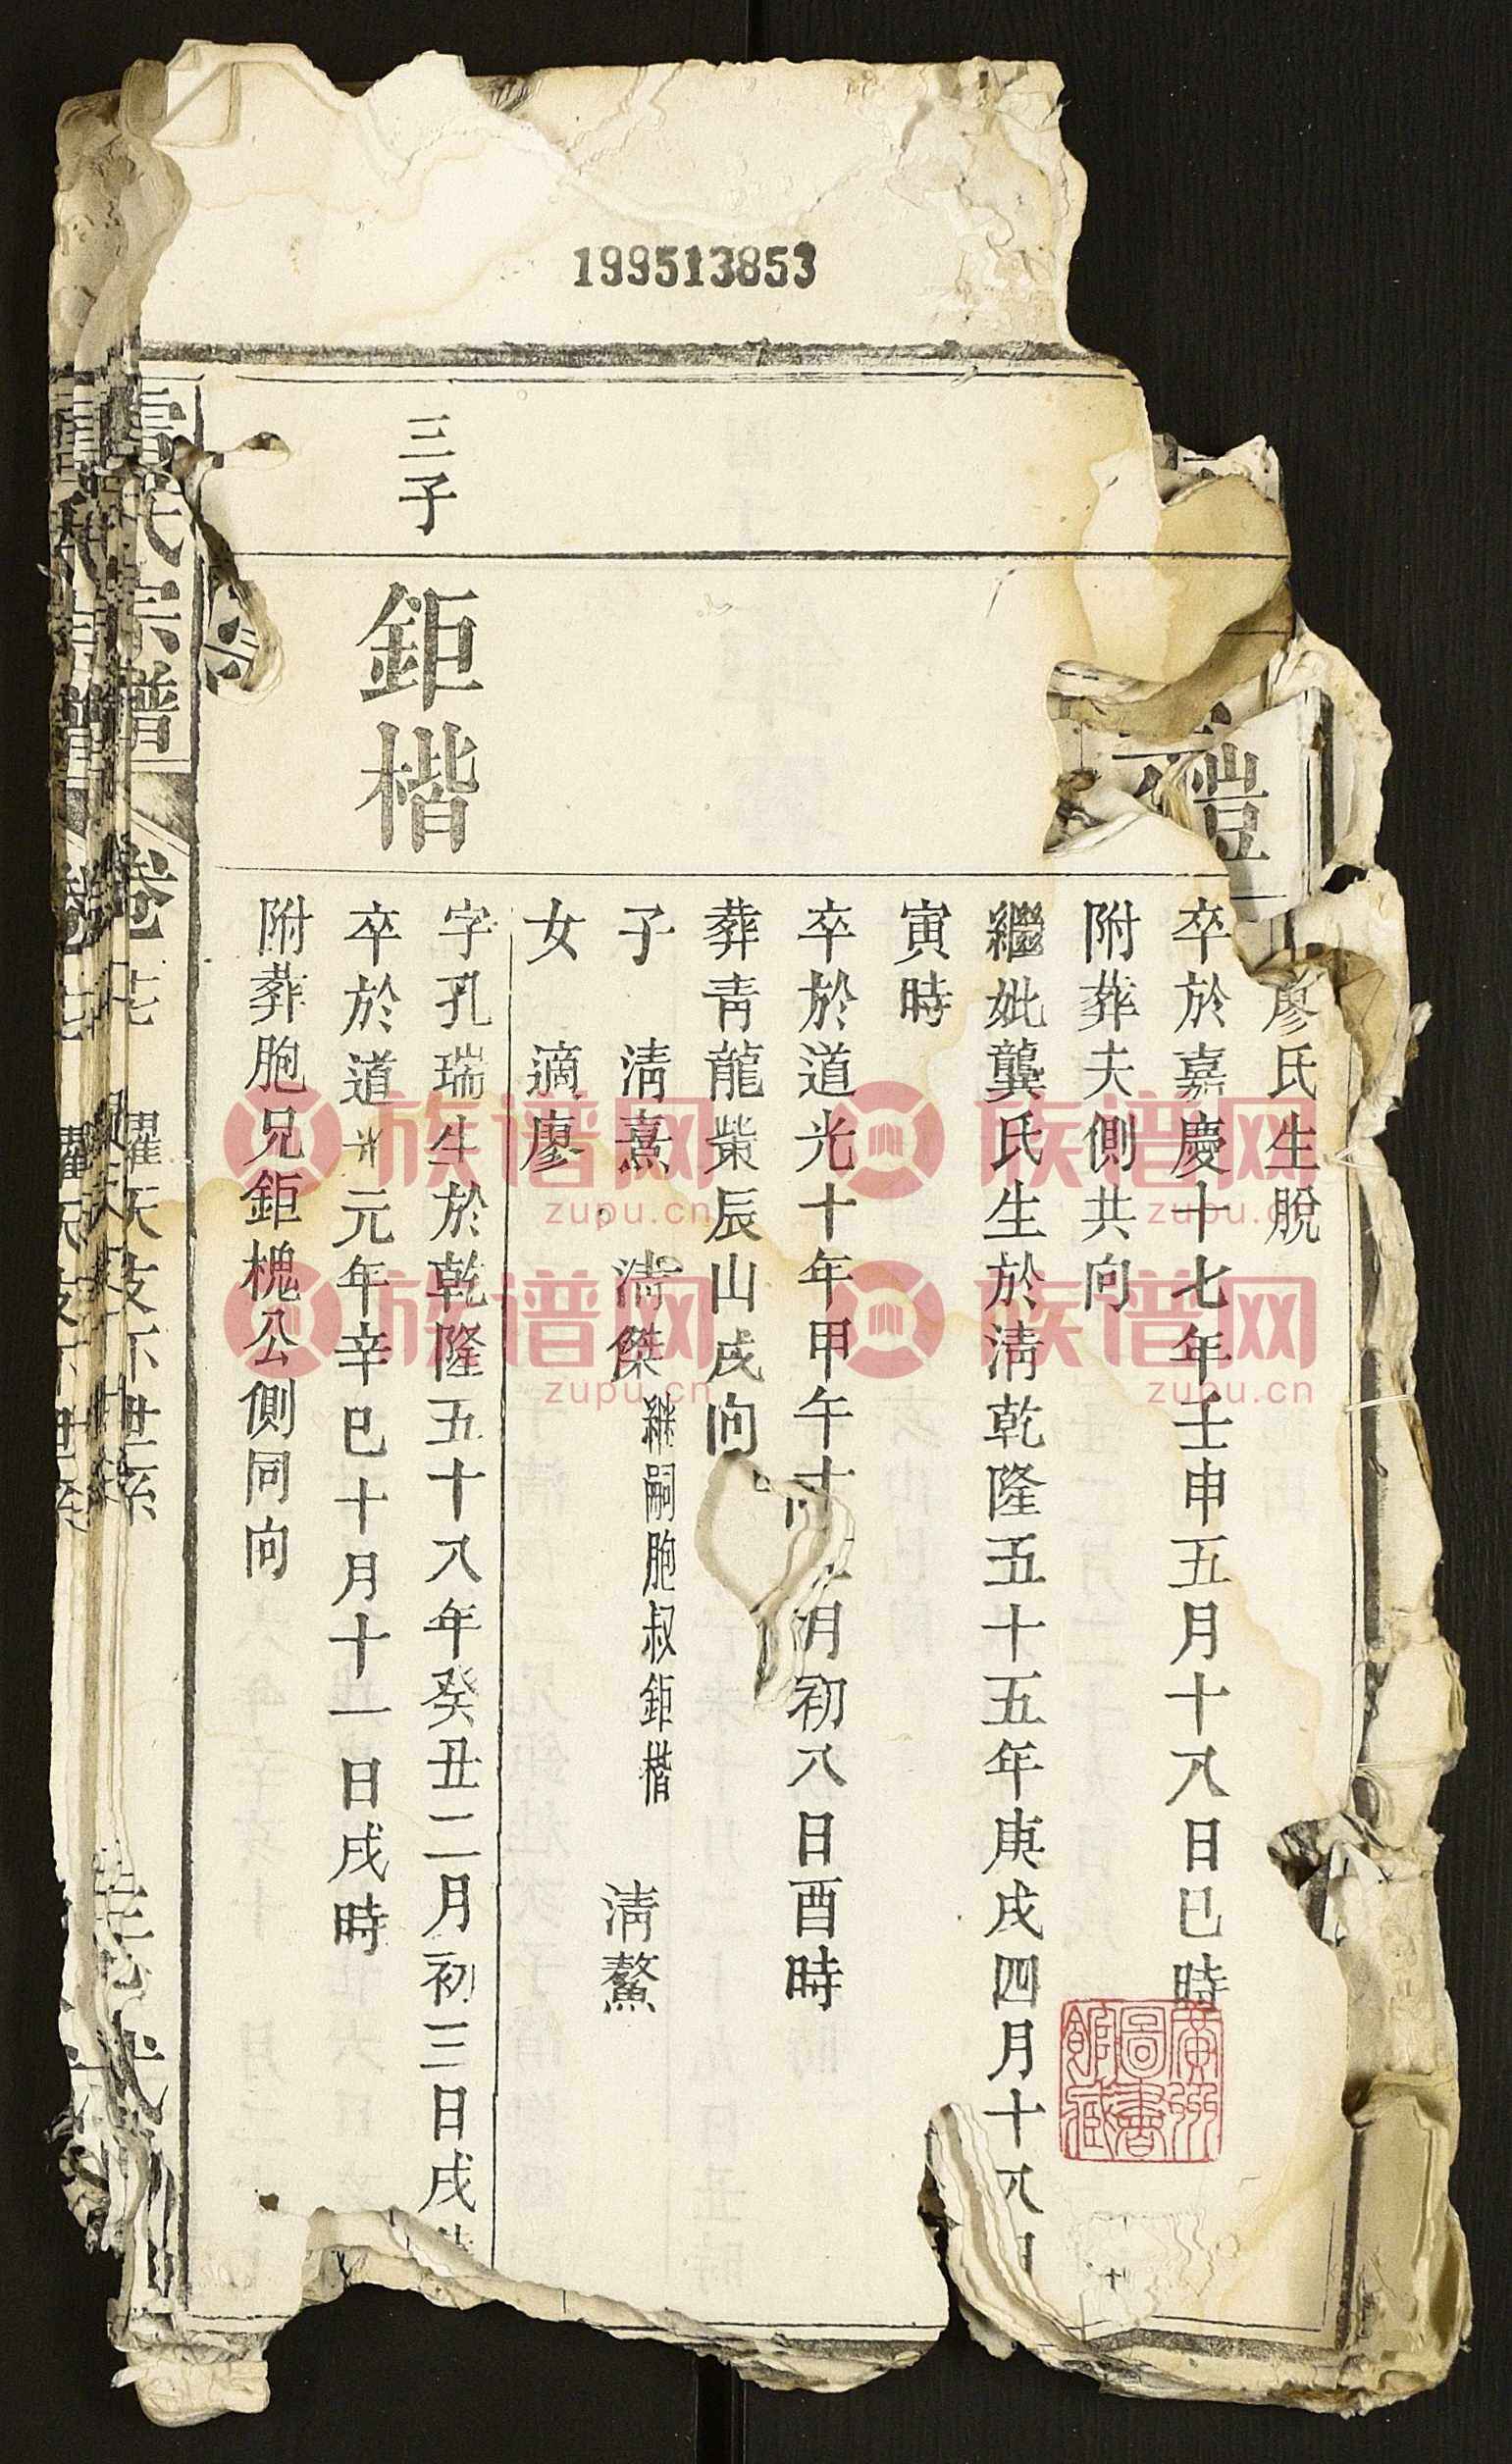 199513853
廖氏生脫
卒於嘉慶十七年壬申五月十八日巳時
附葬夫側共向
繼妣龔氏生於淸乾隆五十五年庚戌四月十八
寅時
卒於道光十年甲午十月初八日酉時
葬靑龍柴辰山戌向
子 淸熹 淸傑 繼嗣胞叔鉅楷 淸鰲
女 適廖
三子
鉅楷
字孔瑞生於乾隆五十八年癸丑二月初三日戌
卒於道光元年辛巳十月十一日戌時
附葬胞兄鉅槐公側同向
氏宗譜
卷
廣州
圖書
館藏
族谱网
zupu.cn
族谱网
zupu.cn
族谱网
zupu.cn
族谱网
zupu.cn